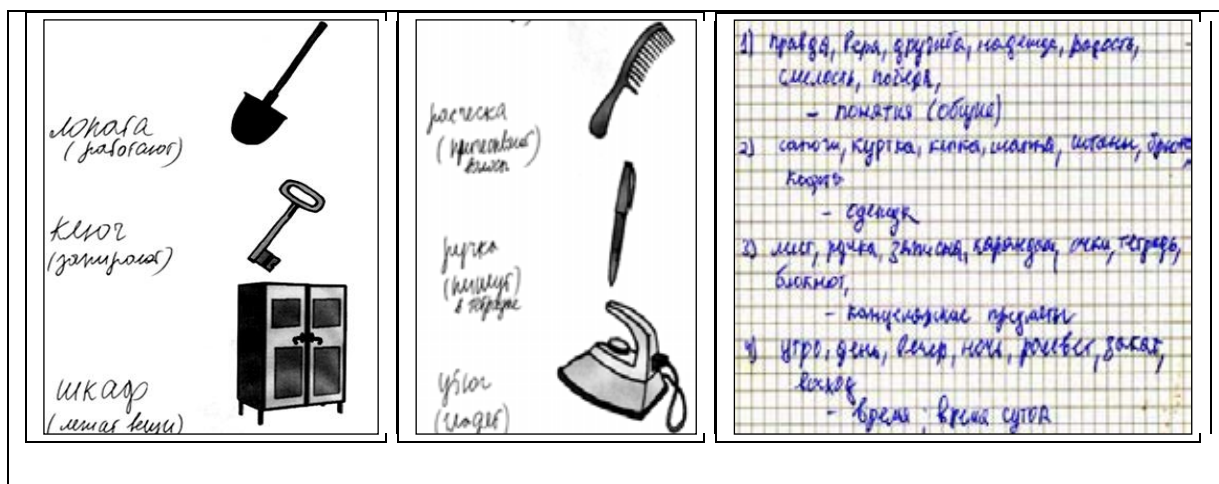 лопата
(работают)
ключ
(запирают)
шкаф
(лежат вещи)
расческа
(причесывают
волосы
ручка
(пишут)
в тетради
утюг
(гладят)
1) правда, вера, дружба, надежда, радость,
смелость, победа,
- понятия (общие)
2) сапоги, куртка, кепка, шапка, штаны, брюки,
кофта
- одежда
3) лист, ручка, записка, карандаш, очки, тетрадь,
блокнот,
- канцелярские предметы
4) утро, день, вечер, ночь, рассвет, закат,
восход
- время; время суток